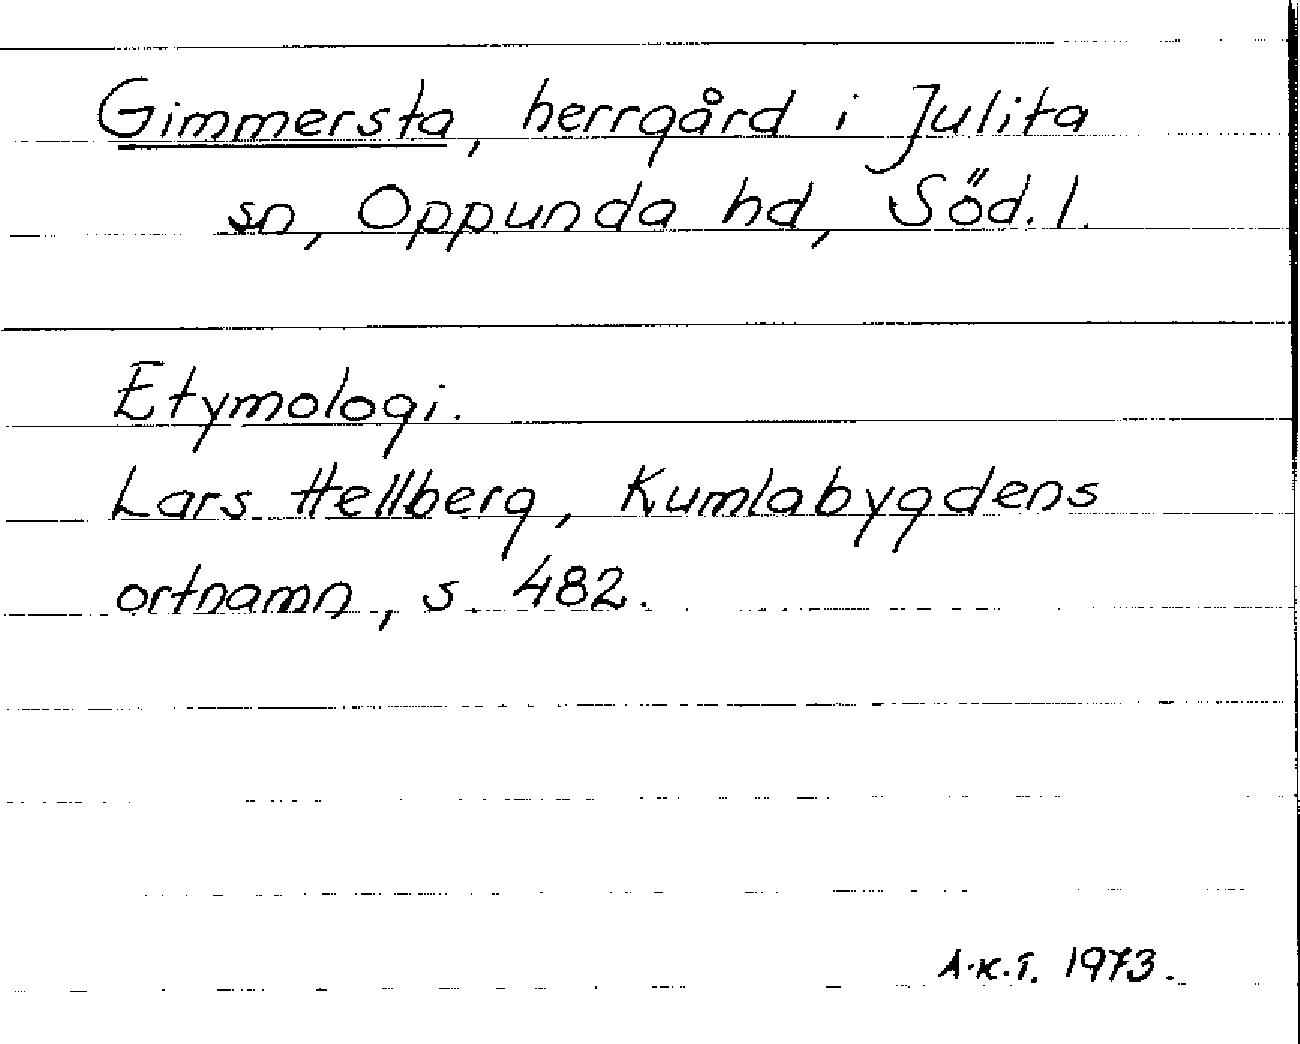 Gimmersta, herrgård i Julita
sn, Oppunda hd, Söd. l.
Etymologi.
Lars Hellberg, Kumlabygdens
ortnamn, s. 482.
A.K.T. 1973.